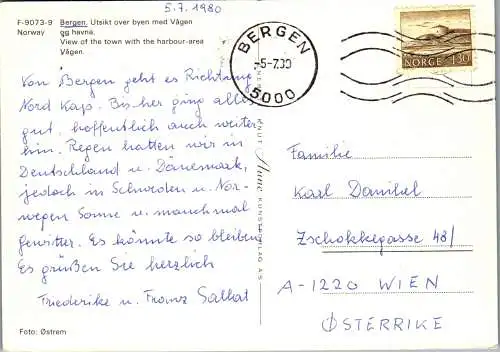 5.7.1980
F-9073-9 Bergen. Utsikt over byen med Vågen
Norway og havna.
View of the town with the harbour-area
Vågen.
BERGEN
-5-7.80
5000
NORGE 130
Von Bergen geht es Richtung
Nord Kap. Bis her ging alles
gut, hoffentlich auch weiter
hin. Regen hatten wir in
Deutschland u. Dänemark,
jedoch in Schweden u. Nor-
wegen Sonne u. manchmal
gewitter. Es könnte so bleiben
Es grüßen Sie herzlich
Friederike u. Franz Sallat
KNUT Aune KUNSTFORLAG A.S
Familie
Karl Danihel
Zschokkegasse 48/
A-1220 WIEN
ØSTERRIKE
Foto: Østrem